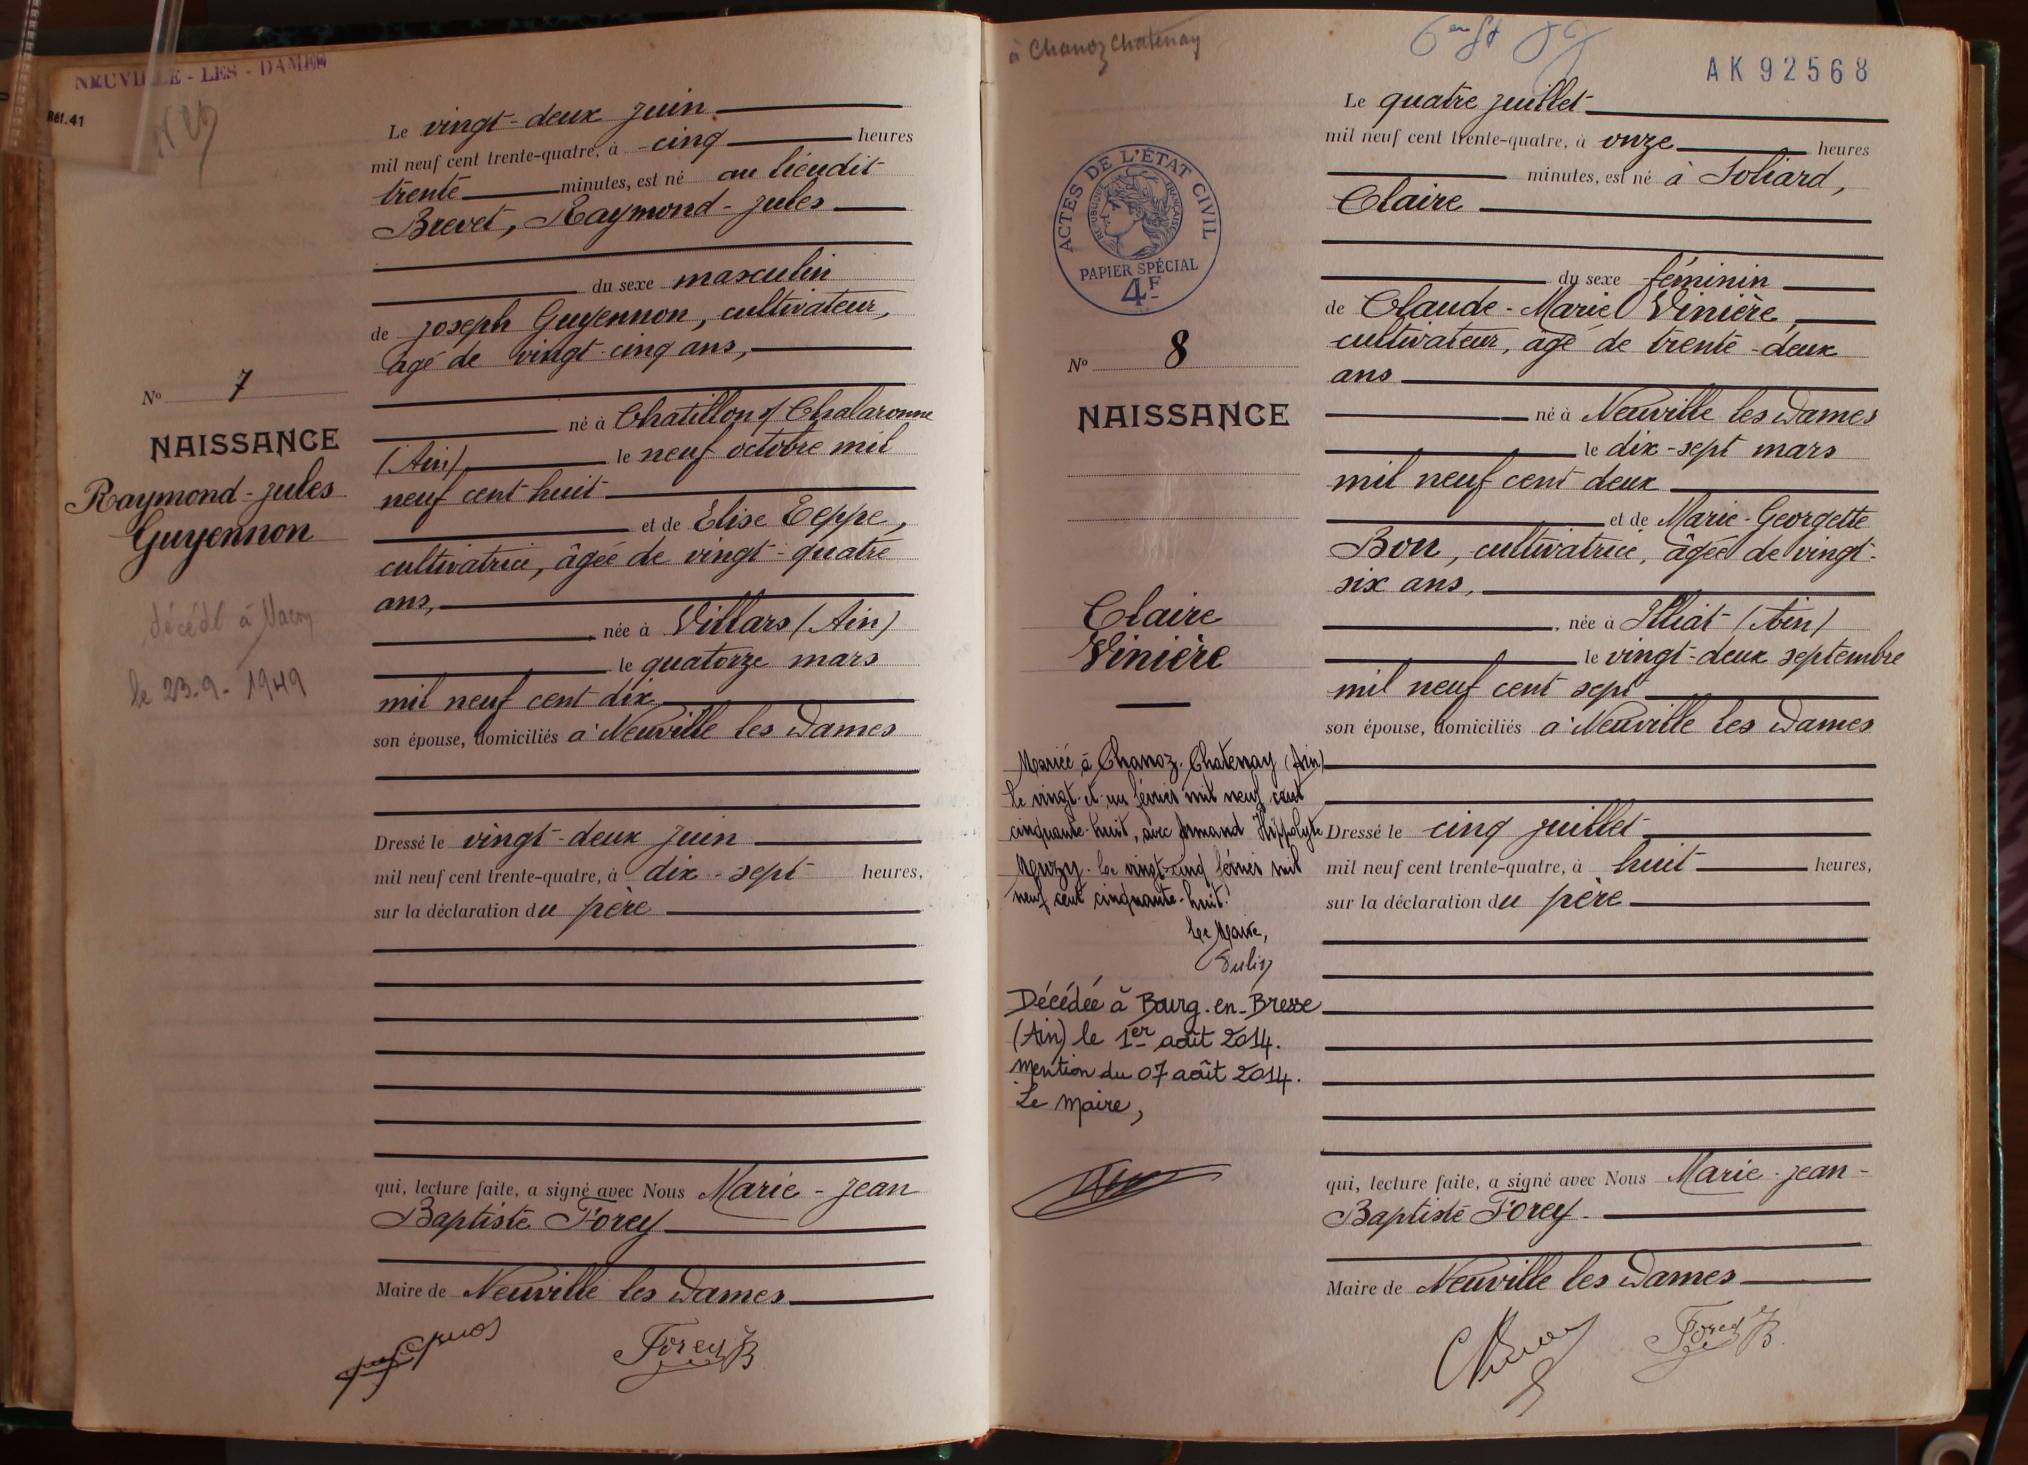 NEUVILLE - LES - DAMES
Réf.41
Le vingt-deux juin
mil neuf cent trente-quatre, à cinq heures
trente minutes, est né au lieudit
Brevet, Raymond-Jules
du sexe masculin
de Joseph Guyennon, cultivateur,
âgé de vingt-cinq ans,
né à Châtillon s/ Chalaronne
(Ain) le neuf octobre mil
neuf cent huit
et de Elise Eeppe,
cultivatrice, âgée de vingt-quatre
ans,
née à Villars (Ain)
le quatorze mars
mil neuf cent dix
son épouse, domiciliés à Neuville les Dames
Dressé le vingt-deux juin
mil neuf cent trente-quatre, à dix-sept heures,
sur la déclaration du père
qui, lecture faite, a signé avec Nous Marie-Jean
Baptiste Forey
Maire de Neuville les Dames
Forey JB
No 7
NAISSANCE
Raymond-Jules
Guyennon
décédé à
le 23-9-1949
à Chanoz Chatenay
AK 92568
ACTES DE L'ÉTAT CIVIL
RÉPUBLIQUE FRANÇAISE
PAPIER SPÉCIAL
4F
No 8
NAISSANCE
Claire
Vinière
Mariée à Chanoz-Chatenay (Ain)
le vingt-et-un février mil neuf cent
cinquante-huit, avec Armand Hippolyte
Le vingt-cinq février mil
neuf cent cinquante-huit.
Le Maire,
Décédée à Bourg-en-Bresse
(Ain) le 1er août 2014.
Mention du 07 août 2014.
Le Maire,
Le quatre juillet
mil neuf cent trente-quatre, à onze heures
minutes, est né à Soliard,
Claire
du sexe féminin
de Claude-Marie Vinière,
cultivateur, âgé de trente-deux
ans
né à Neuville les Dames
le dix-sept mars
mil neuf cent deux
et de Marie-Georgette
Bon, cultivatrice, âgée de vingt-
six ans,
née à Illiat (Ain)
le vingt-deux septembre
mil neuf cent sept
son épouse, domiciliés à Neuville les Dames
Dressé le cinq juillet
mil neuf cent trente-quatre, à huit heures,
sur la déclaration du père
qui, lecture faite, a signé avec Nous Marie-Jean-
Baptiste Forey.
Maire de Neuville les Dames
Forey JB